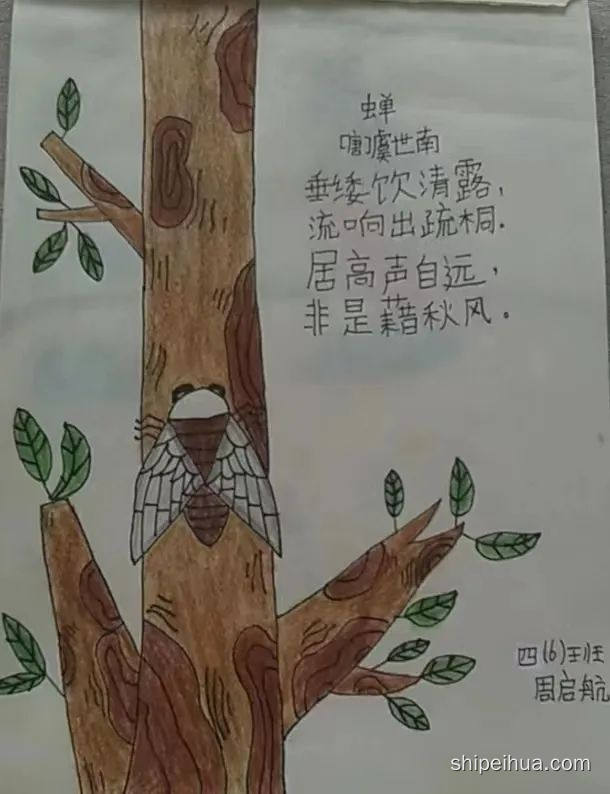 蝉
唐 虞世南
垂緌饮清露，
流响出疏桐.
居高声自远，
非是藉秋风。
四(6)班
周启航
shipeihua.com